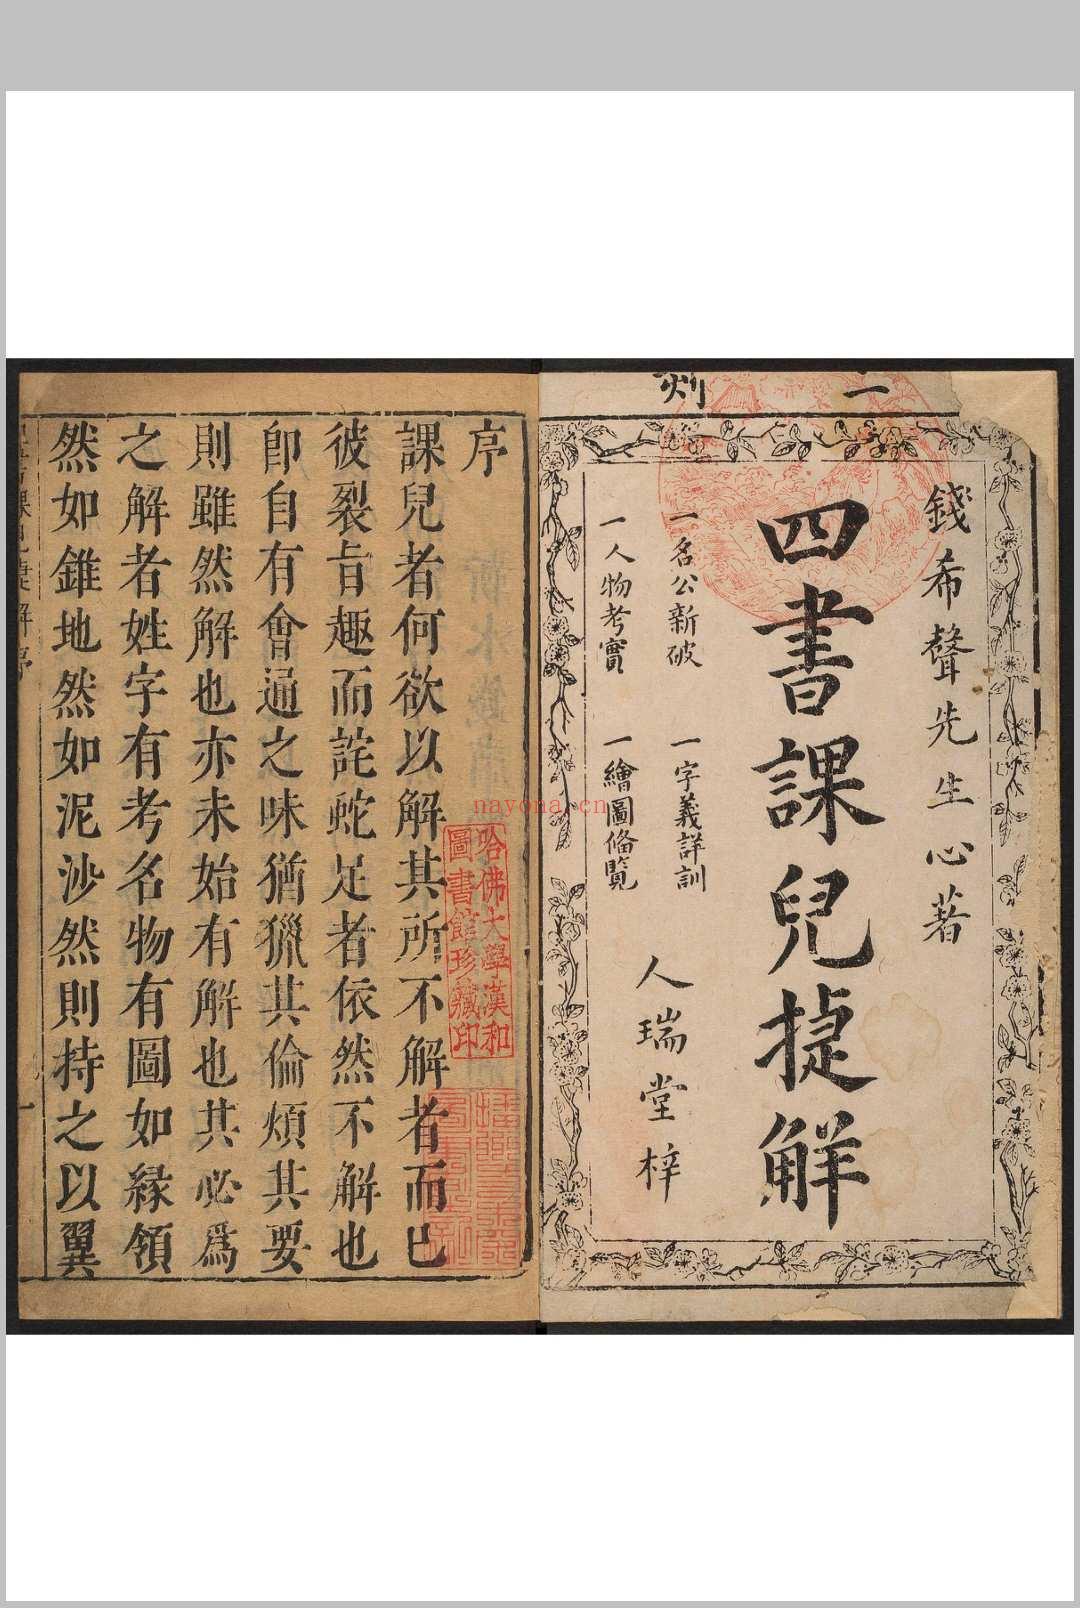 二刻
錢希聲先生心著
四書課兒捷解
一名公新破
一字義詳訓
一人物考實
一繪圖俻覽
人瑞堂梓
序
課兒者何欲以解其所不解者而已
彼裂旨趣而詫蛇足者依然不解也
卽自有會通之味猶獵其倫煩其要
則雖然解也亦未始有解也其必爲
之解者姓字有考名物有圖如緣領
然如錐地然如泥沙然則持之以翼
哈佛大學漢和
圖書館珍藏印
nayona.cn